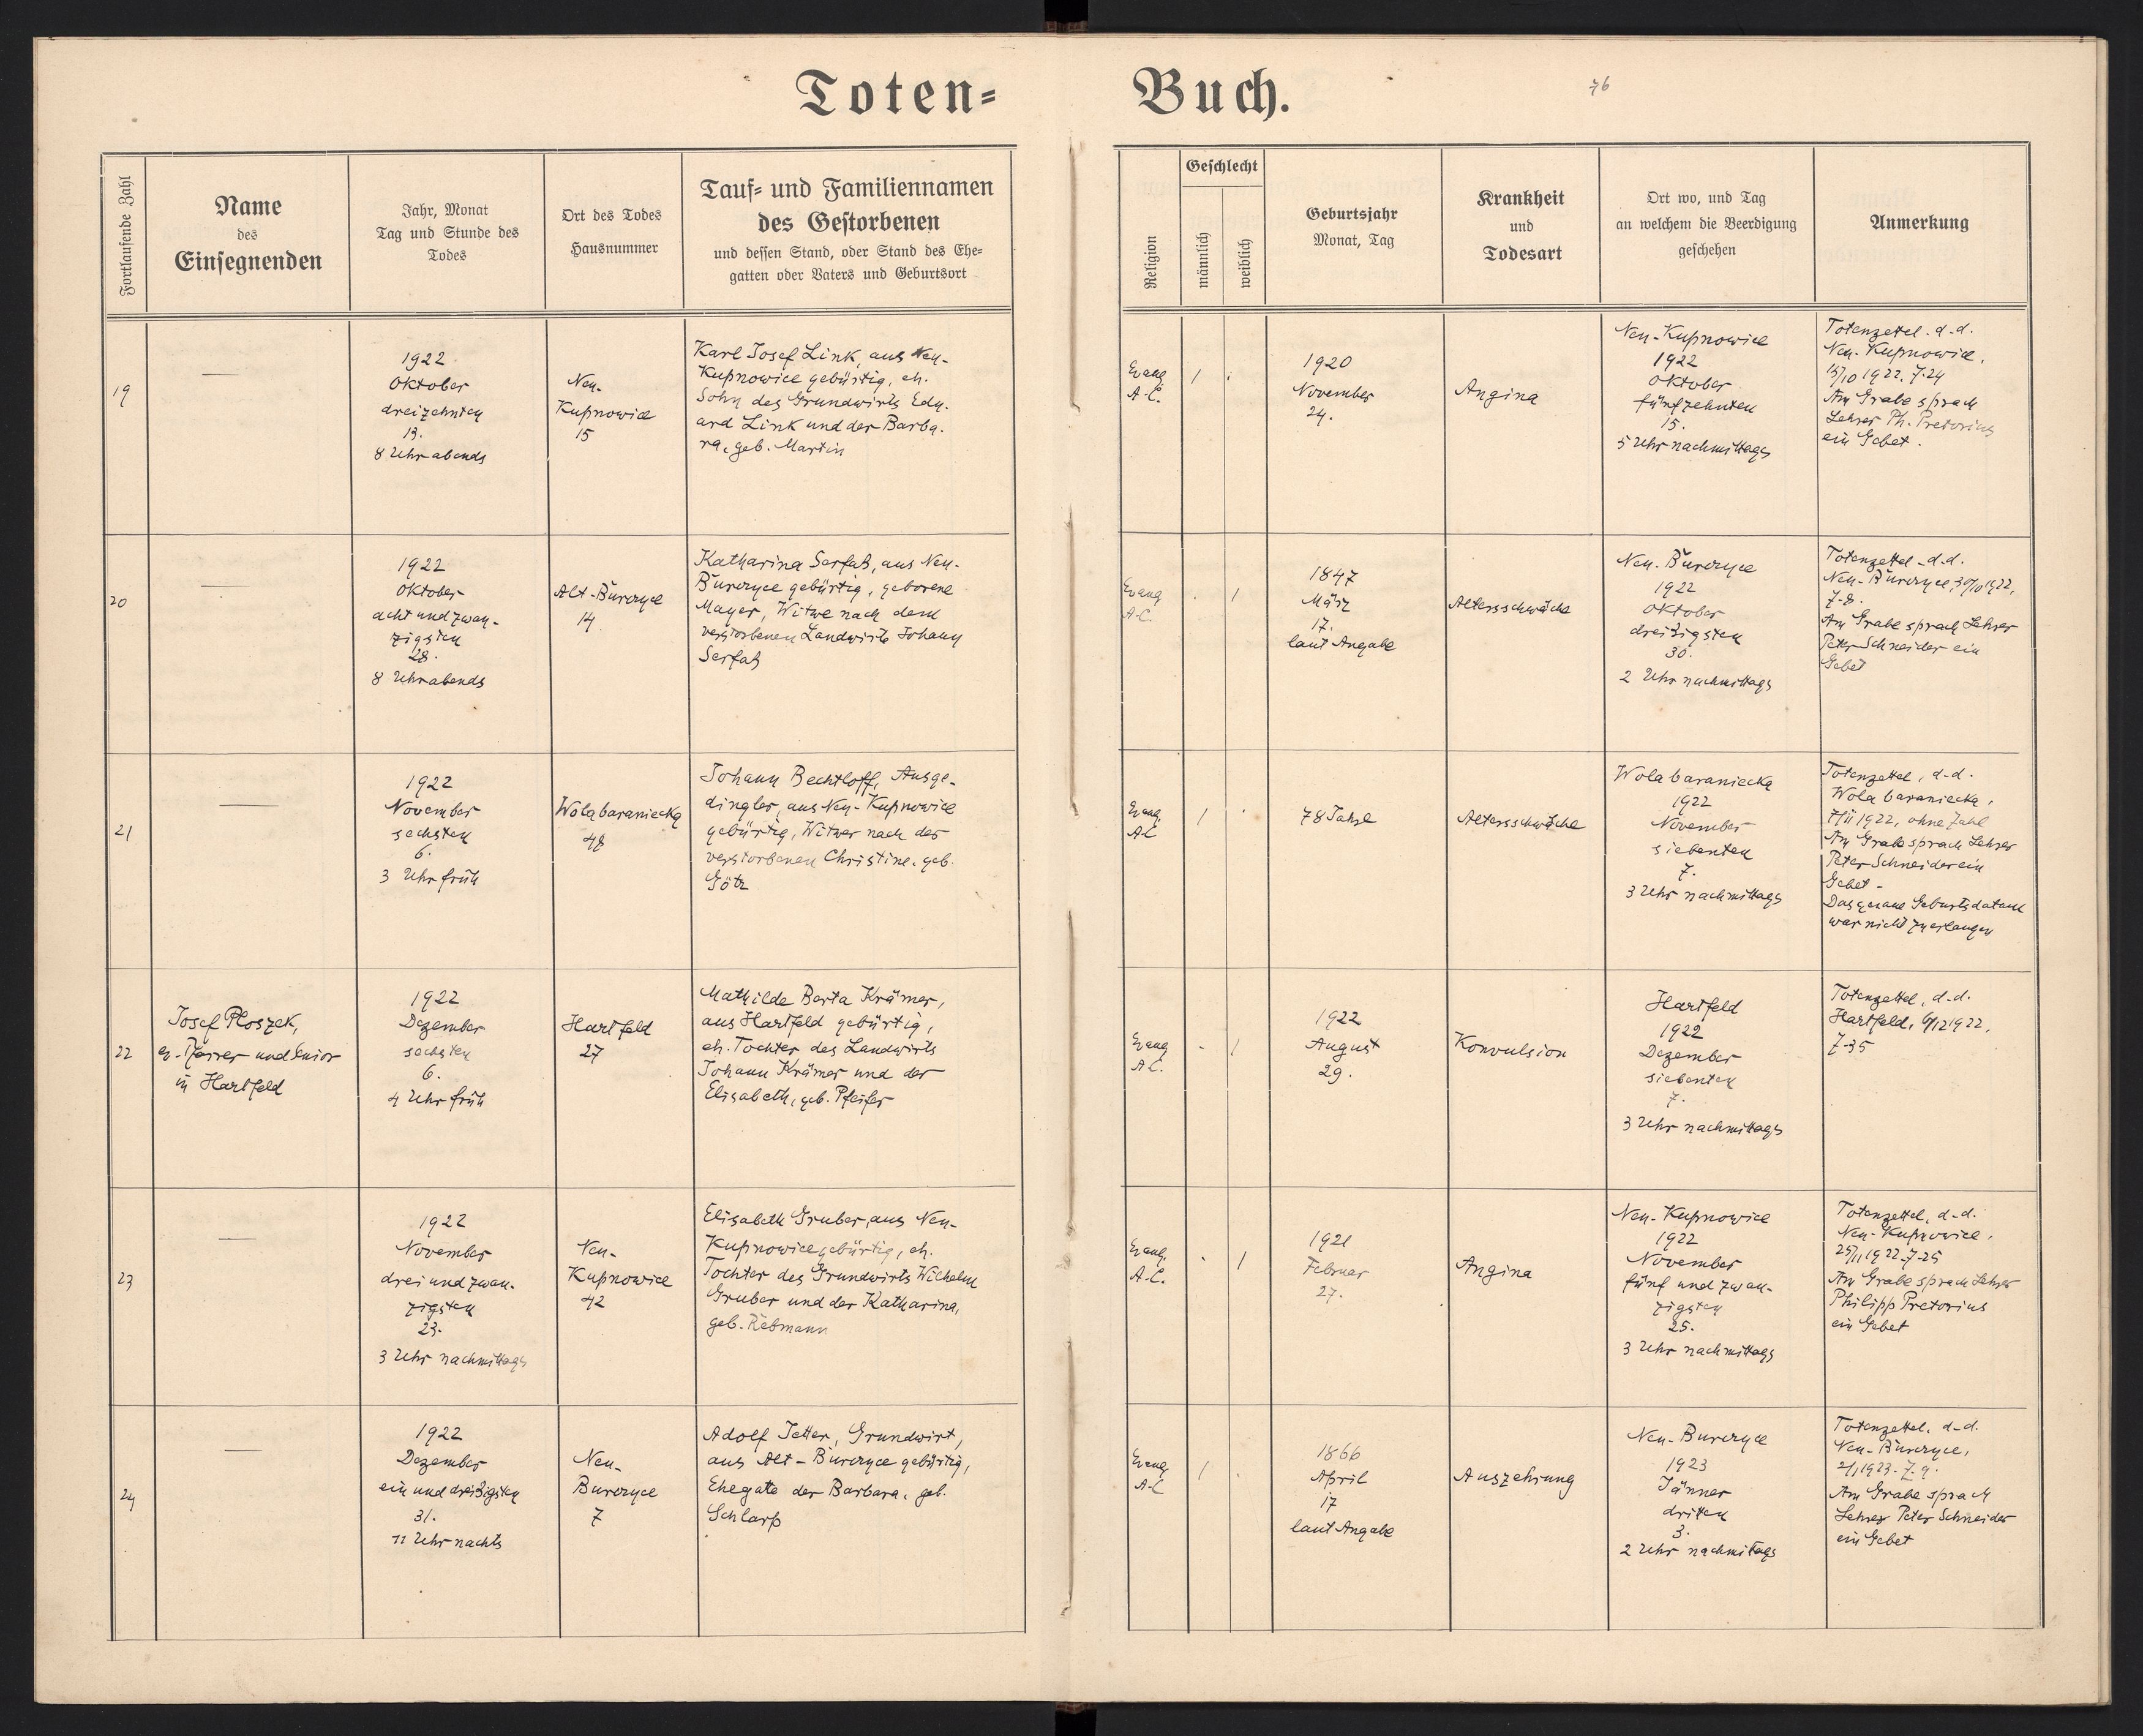 Toten= Buch.
76
Fortlaufende Zahl
Name
des
Einsegnenden
Jahr, Monat
Tag und Stunde des
Todes
Ort des Todes
Hausnummer
Tauf= und Familiennamen
des Gestorbenen
und dessen Stand, oder Stand des Ehe=
gatten oder Vaters und Geburtsort
Religion
Geschlecht
männlich
weiblich
Geburtsjahr
Monat, Tag
Krankheit
und
Todesart
Ort wo, und Tag
an welchem die Beerdigung
geschehen
Anmerkung
19
—
1922
Oktober
dreizehnten
13.
8 Uhr abends
Neu-
Kupnowice
15
Karl Josef Link, aus Neu-
Kupnowice gebürtig, eh.
Sohn des Grundwirts Edu-
ard Link und der Barba-
ra, geb. Martin
Evang.
A.C.
1
.
1920
November
24.
Angina
Neu-Kupnowice
1922
Oktober
fünfzehnten
15.
5 Uhr nachmittags
Totenzettel. d.d.
Neu-Kupnowice,
15/10 1922. Z.24
Am Grabe sprach
Lehrer Ph. Pretorius
ein Gebet.
20
—
1922
Oktober
acht und zwan-
zigsten
28.
8 Uhr abends
Alt-Burczyce
14
Katharina Serfas, aus Neu-
Burczyce gebürtig, geborene
Mayer, Witwe nach dem
verstorbenen Landwirts Johann
Serfas
Evang
A.C.
.
1
1847
März
17.
laut Angabe
Altersschwäche
Neu-Burczyce
1922
Oktober
dreißigsten
30.
2 Uhr nachmittags
Totenzettel d.d.
Neu-Burczyce, 30/10 1922,
Z.8.
Am Grabe sprach Lehrer
Peter Schneider ein
Gebet
21
—
1922
November
sechsten
6.
3 Uhr früh
Wola baraniecka
48
Johann Bechtloff, Ausge-
dingler, aus Neu-Kupnowice
gebürtig, Witwer nach der
verstorbenen Christine, geb.
Götz
Evang.
A.C
1
.
78 Jahre
Altersschwäche
Wola baraniecka
1922
November
siebenten
7.
3 Uhr nachmittags
Totenzettel, d.d.
Wola baraniecka,
7/11 1922, ohne Zahl
Am Grabe sprach Lehrer
Peter Schneider ein
Gebet -
Das genaue Geburtsdatum
war nicht zu erlangen
22
Josef Ploszek,
ev. Pfarrer und Senior
in Hartfeld
1922
Dezember
sechsten
6.
4 Uhr früh
Hartfeld
27
Mathilde Berta Krämer,
aus Hartfeld gebürtig,
eh. Tochter des Landwirts
Johann Krämer und der
Elisabeth, geb. Pfeifer
Evang
A.C.
.
1
1922
August
29.
Konvulsion
Hartfeld
1922
Dezember
siebenten
7.
3 Uhr nachmittags
Totenzettel, d.d.
Hartfeld, 6/12 1922,
Z.35
23
—
1922
November
drei und zwan-
zigsten
23.
3 Uhr nachmittags
Neu-
Kupnowice
42
Elisabeth Gruber, aus Neu-
Kupnowice gebürtig, eh.
Tochter des Grundwirts Wilhelm
Gruber und der Katharina,
geb. Rebmann
Evang.
A.C.
.
1
1921
Februar
27.
Angina
Neu-Kupnowice
1922
November
fünf und zwan-
zigsten
25.
3 Uhr nachmittags
Totenzettel, d.d.
Neu-Kupnowice,
25/11 1922. Z.25
Am Grabe sprach Lehrer
Philipp Pretorius
ein Gebet
24
—
1922
Dezember
ein und dreißigsten
31.
11 Uhr nachts
Neu-
Burczyce
7
Adolf Jetter, Grundwirt,
aus Alt-Burczyce gebürtig,
Ehegate der Barbara, geb.
Schlarp
Evang
A.C
1
.
1866
April
17
laut Angabe
Auszehrung
Neu-Burczyce
1923
Jänner
dritten
3.
2 Uhr nachmittags
Totenzettel, d.d.
Neu-Burczyce,
2/1 1923. Z.9.
Am Grabe sprach
Lehrer Peter Schneider
ein Gebet